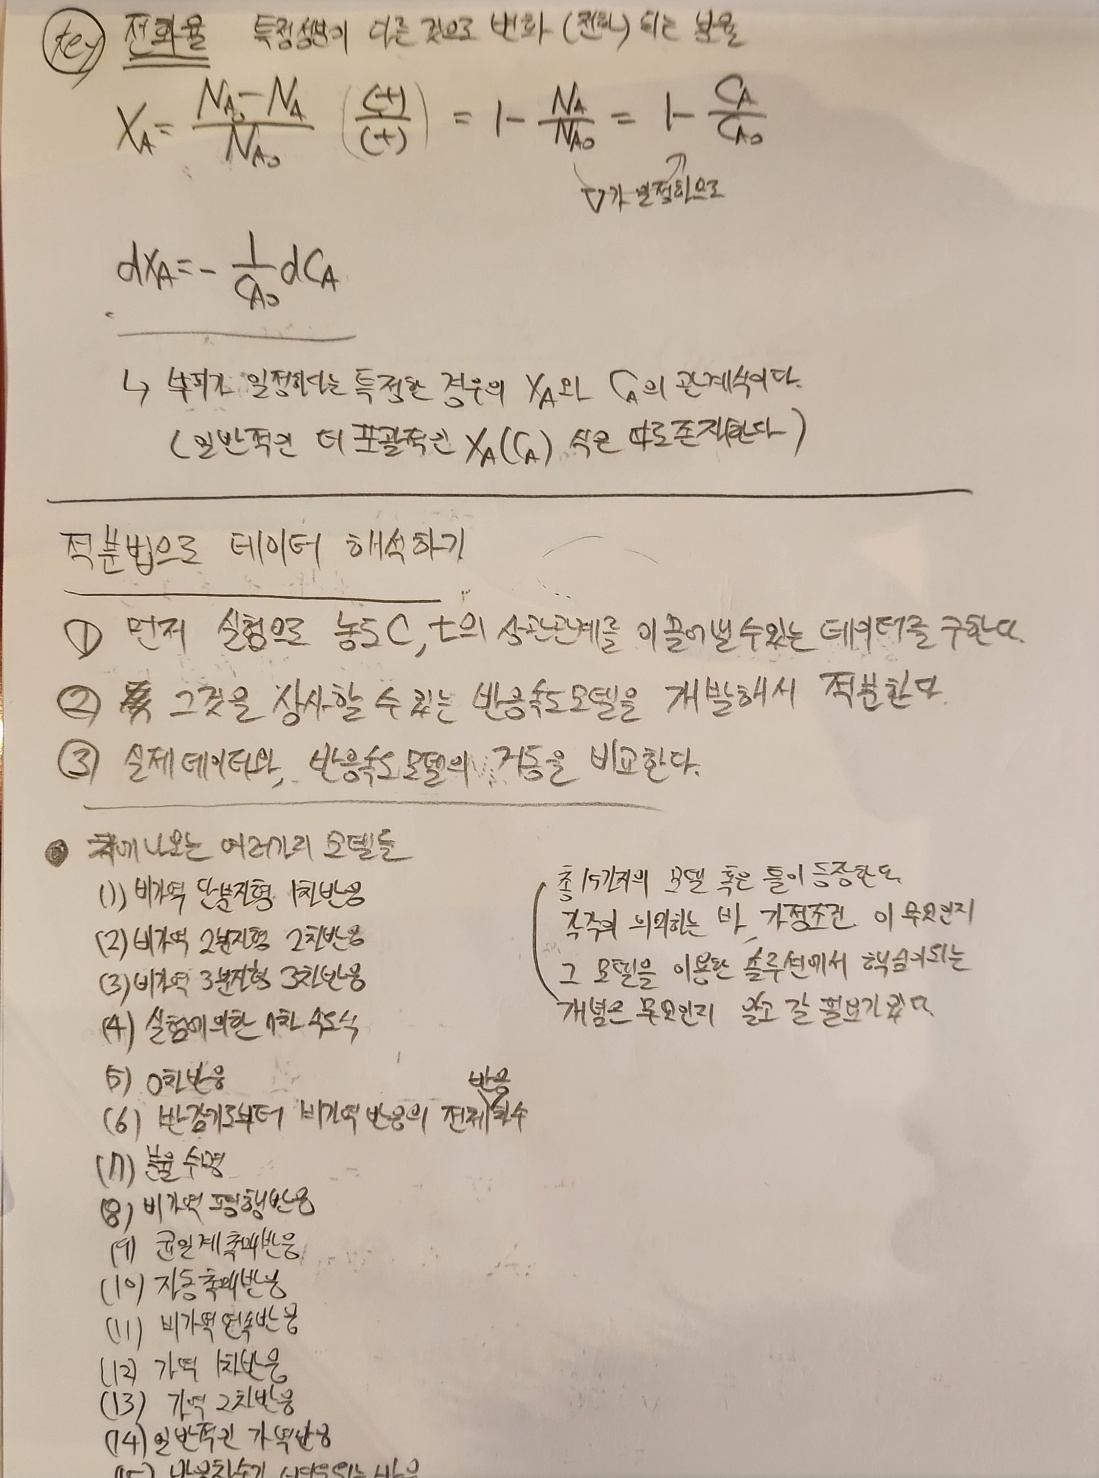 key 전화율 특정성분이 다른 것으로 변화 (전화) 되는 비율
X_A = (N_A0 - N_A) / N_A0 ((+)/(+)) = 1 - N_A/N_A0 = 1 - C_A/C_A0
V가 일정하므로
dX_A = - 1/C_A0 dC_A
↳ 부피가 일정하다는 특정한 경우의 X_A와 C_A의 관계식이다.
(일반적인 더 포괄적인 X_A(C_A) 식은 따로존재한다)
적분법으로 데이터 해석하기
① 먼저 실험으로 농도C, t의 상관관계를 이끌어낼수있는 데이터를 구한다.
② 그것을 상사할 수 있는 반응속도모델을 개발해서 적분한다.
③ 실제데이터와, 반응속도모델의 거동을 비교한다.
● 책에나오는 여러가지 모델들
(1) 비가역 단분자형 1차반응
(2) 비가역 2분자형 2차반응
(3) 비가역 3분자형 3차반응
(4) 실험에의한 n차 속도식
(5) 0차반응
(6) 반감기로부터 비가역반응의 전체반응차수
(7) 분율수명
(8) 비가역 평행반응
(9) 균일계 촉매반응
(10) 자동촉매반응
(11) 비가역연속반응
(12) 가역 1차반응
(13) 가역 2차반응
(14) 일반적인 가역반응
(15) 반응차수가 반응
총 15가지의 모델 혹은 틀이 등장한다
각각의 의미하는 바, 가정조건이 무엇인지
그 모델을 이용한 솔루션에서 핵심이되는
개념은 무엇인지 알고 갈 필요가있다